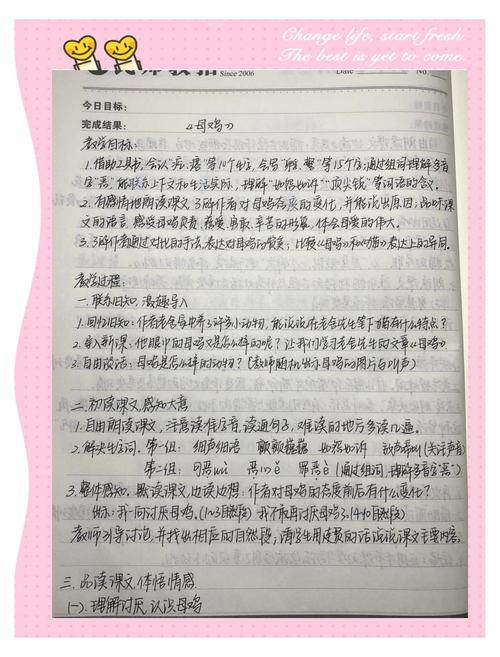 Change life, start fresh.
The best is yet to come.
Since 2006
Date
No.
今日目标:
完成结果:
《母鸡》
教学目标:
1.借助工具书,会认“疙、瘩”等10个生字,会写“,警”等15个字;通过组词理解多音
字“恶”,能联系上下文和生活实际,理解“如怨如诉”“顶尖锐”等词语的含义。
2.有感情地朗读课文,了解作者对母鸡态度的变化,并能说出原因;品味课
文的语言,感受母鸡负责、慈爱、勇敢、辛苦的形象,体会母爱的伟大。
3.了解作者通过对比的手法,表达对母鸡的敬爱;比较《母鸡》和《猫》表达上的异同。
教学过程:
一.联系旧知,导入
1.回忆旧知:作者老舍家中养了许多小动物,能说说在老舍先生笔下猫有什么特点?
2.导入新课:他眼中的母鸡又是怎样的呢?让我们学习老舍先生的文章《母鸡》
3.自由谈话:母鸡是怎么样的动物?(教师随机出示母鸡的图片与叫声)
二.初读课文,感知大意
1.自由朗读课文,注意读准字音,读通句子,难读的地方多读几遍。
2.解决生字词。第一组:细声细语 颤颤巍巍 如怨如诉 放声啼叫(关注声音)
第二组:可恶wù 恶ě 罪恶è(通过组词,理解多音字“恶”)
3.整体感知。默读课文,边读边想:作者对母鸡的态度前后有什么变化?
出示:我一向讨厌母鸡。(1~3自然段) 我不敢再讨厌母鸡了。(4-10自然段)
教师引导讨论,并找出相应的自然段;请学生用连贯的话说说课文主要内容。
三.品读课文,体悟情感
(一).理解讨厌,认识母鸡